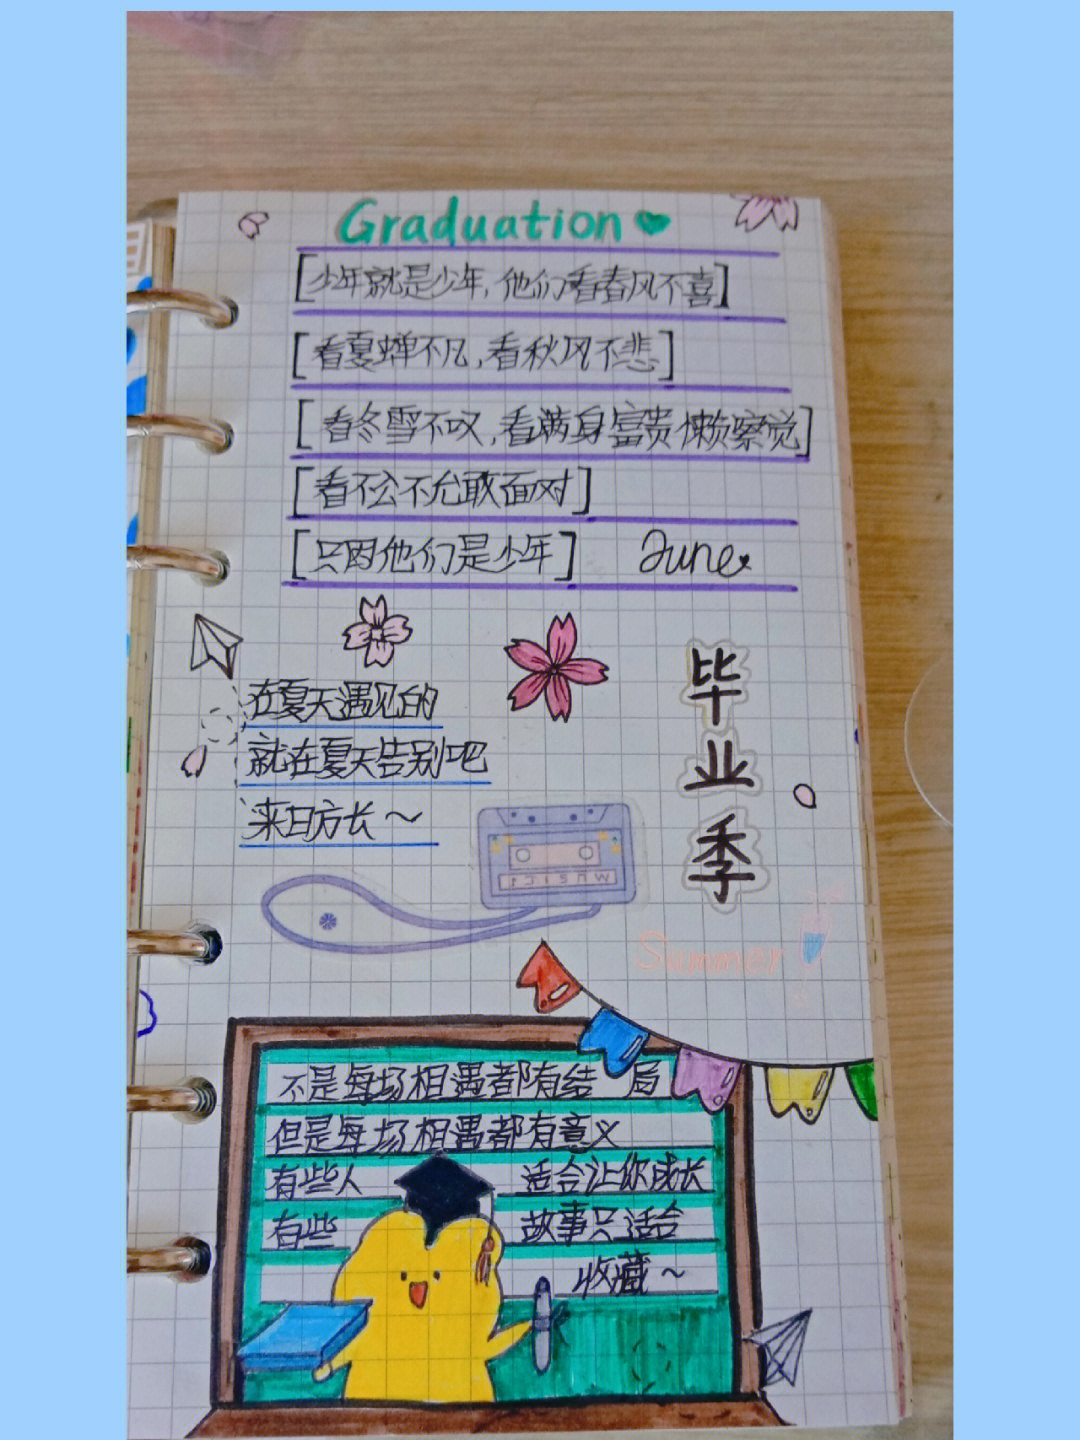 Graduation
[少年就是少年,他们看春风不喜]
[看夏蝉不凡,看秋风不悲]
[看冬雪不叹,看满身富贵懒察觉]
[看不公不允敢面对]
[只因他们是少年] June
在夏天遇见的
就在夏天告别吧
来日方长~
毕业季
MUSIC1
Summer
不是每场相遇都有结局
但是每场相遇都有意义
有些人 适合让你成长
有些 故事只适合
收藏~